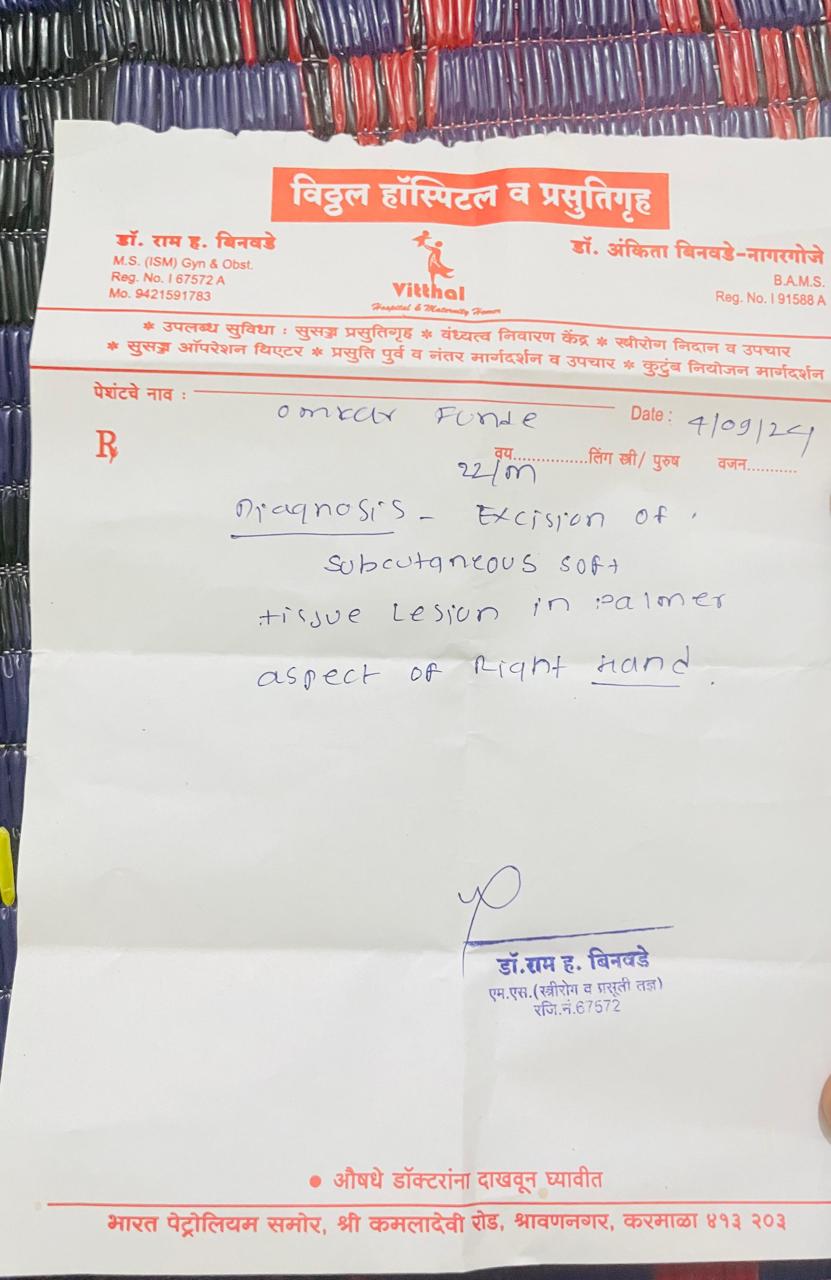 विठ्ठल हॉस्पिटल व प्रसुतिगृह
डॉ. राम ह. बिनवडे
M.S. (ISM) Gyn & Obst.
Reg. No. I 67572 A
Mo. 9421591783
Vitthal
Hospital & Maternity Home
डॉ. अंकिता बिनवडे-नागरगोजे
B.A.M.S.
Reg. No. I 91588 A
* उपलब्ध सुविधा : सुसज्ज प्रसुतिगृह * वंध्यत्व निवारण केंद्र * स्त्रीरोग निदान व उपचार
* सुसज्ज ऑपरेशन थिएटर * प्रसुति पुर्व व नंतर मार्गदर्शन व उपचार * कुटुंब नियोजन मार्गदर्शन
पेशंटचे नाव : omkar Funde Date : 4/09/24
℞ वय 22/m लिंग स्त्री/ पुरुष वजन
Diagnosis - Excision of
subcutaneous soft
tissue Lesion in palmer
aspect of Right Hand.
डॉ.राम ह. बिनवडे
एम.एस.(स्त्रीरोग व प्रसूती तज्ञ)
रजि.नं.67572
• औषधे डॉक्टरांना दाखवून घ्यावीत
भारत पेट्रोलियम समोर, श्री कमलादेवी रोड, श्रावणनगर, करमाळा ४१३ २०३